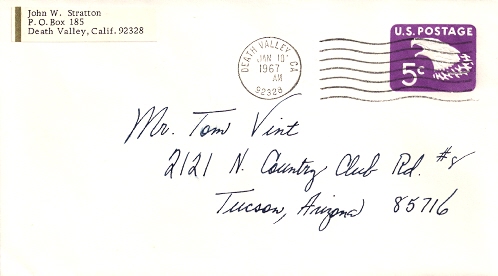 John W. Stratton
P. O. Box 185
Death Valley, Calif. 92328
DEATH VALLEY, CA
JAN 10
1967
AM
92328
U.S. POSTAGE
5c
Mr. Tom Vint
2121 N. Country Club Rd. #8
Tucson, Arizona 85716